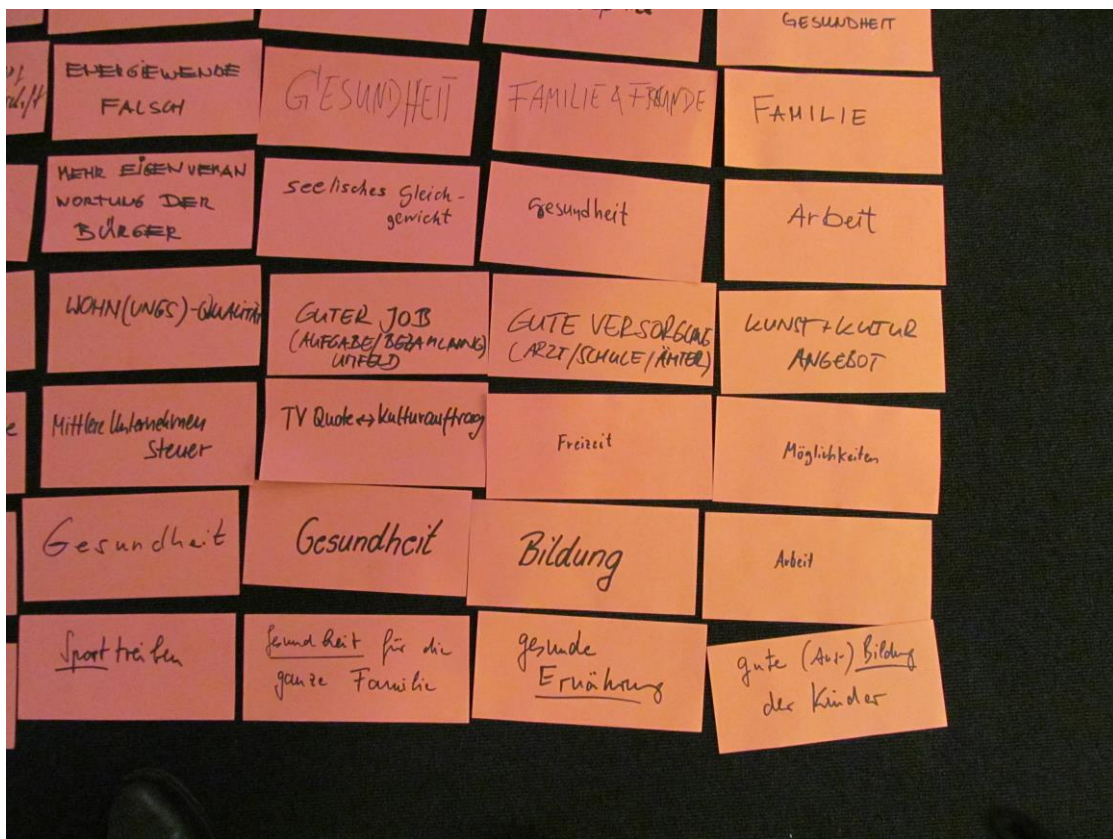 GESUNDHEIT
ENERGIEWENDE
FALSCH
GESUNDHEIT
FAMILIE & FREUNDE
FAMILIE
MEHR EIGENVERAN
WORTUNG DER
BÜRGER
seelisches Gleich-
gewicht
Gesundheit
Arbeit
WOHN(UNGS)-QUALITÄT
GUTER JOB
(AUFGABE/BEZAHLUNG)
UMFELD
GUTE VERSORGUNG
(ARZT/SCHULE/ÄMTER)
KUNST + KULTUR
ANGEBOT
Mittlere Unternehmen
Steuer
TV Quote ↔ Kulturauftrag
Freizeit
Möglichkeiten
Gesundheit
Gesundheit
Bildung
Arbeit
Sport treiben
Gesundheit für die
ganze Familie
gesunde
Ernährung
gute (Aus-) Bildung
der Kinder